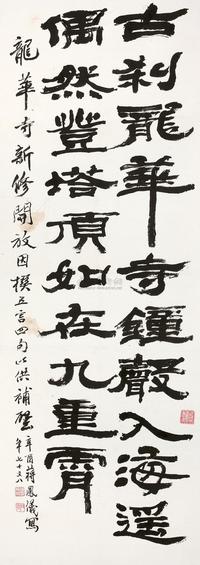 古刹龍華寺鐘聲入海遥
偶然登塔頂如在九重霄
龍華寺新修開放因撰五言四句以供補壁
辛酉蔣鳳儀寫
年七十又八